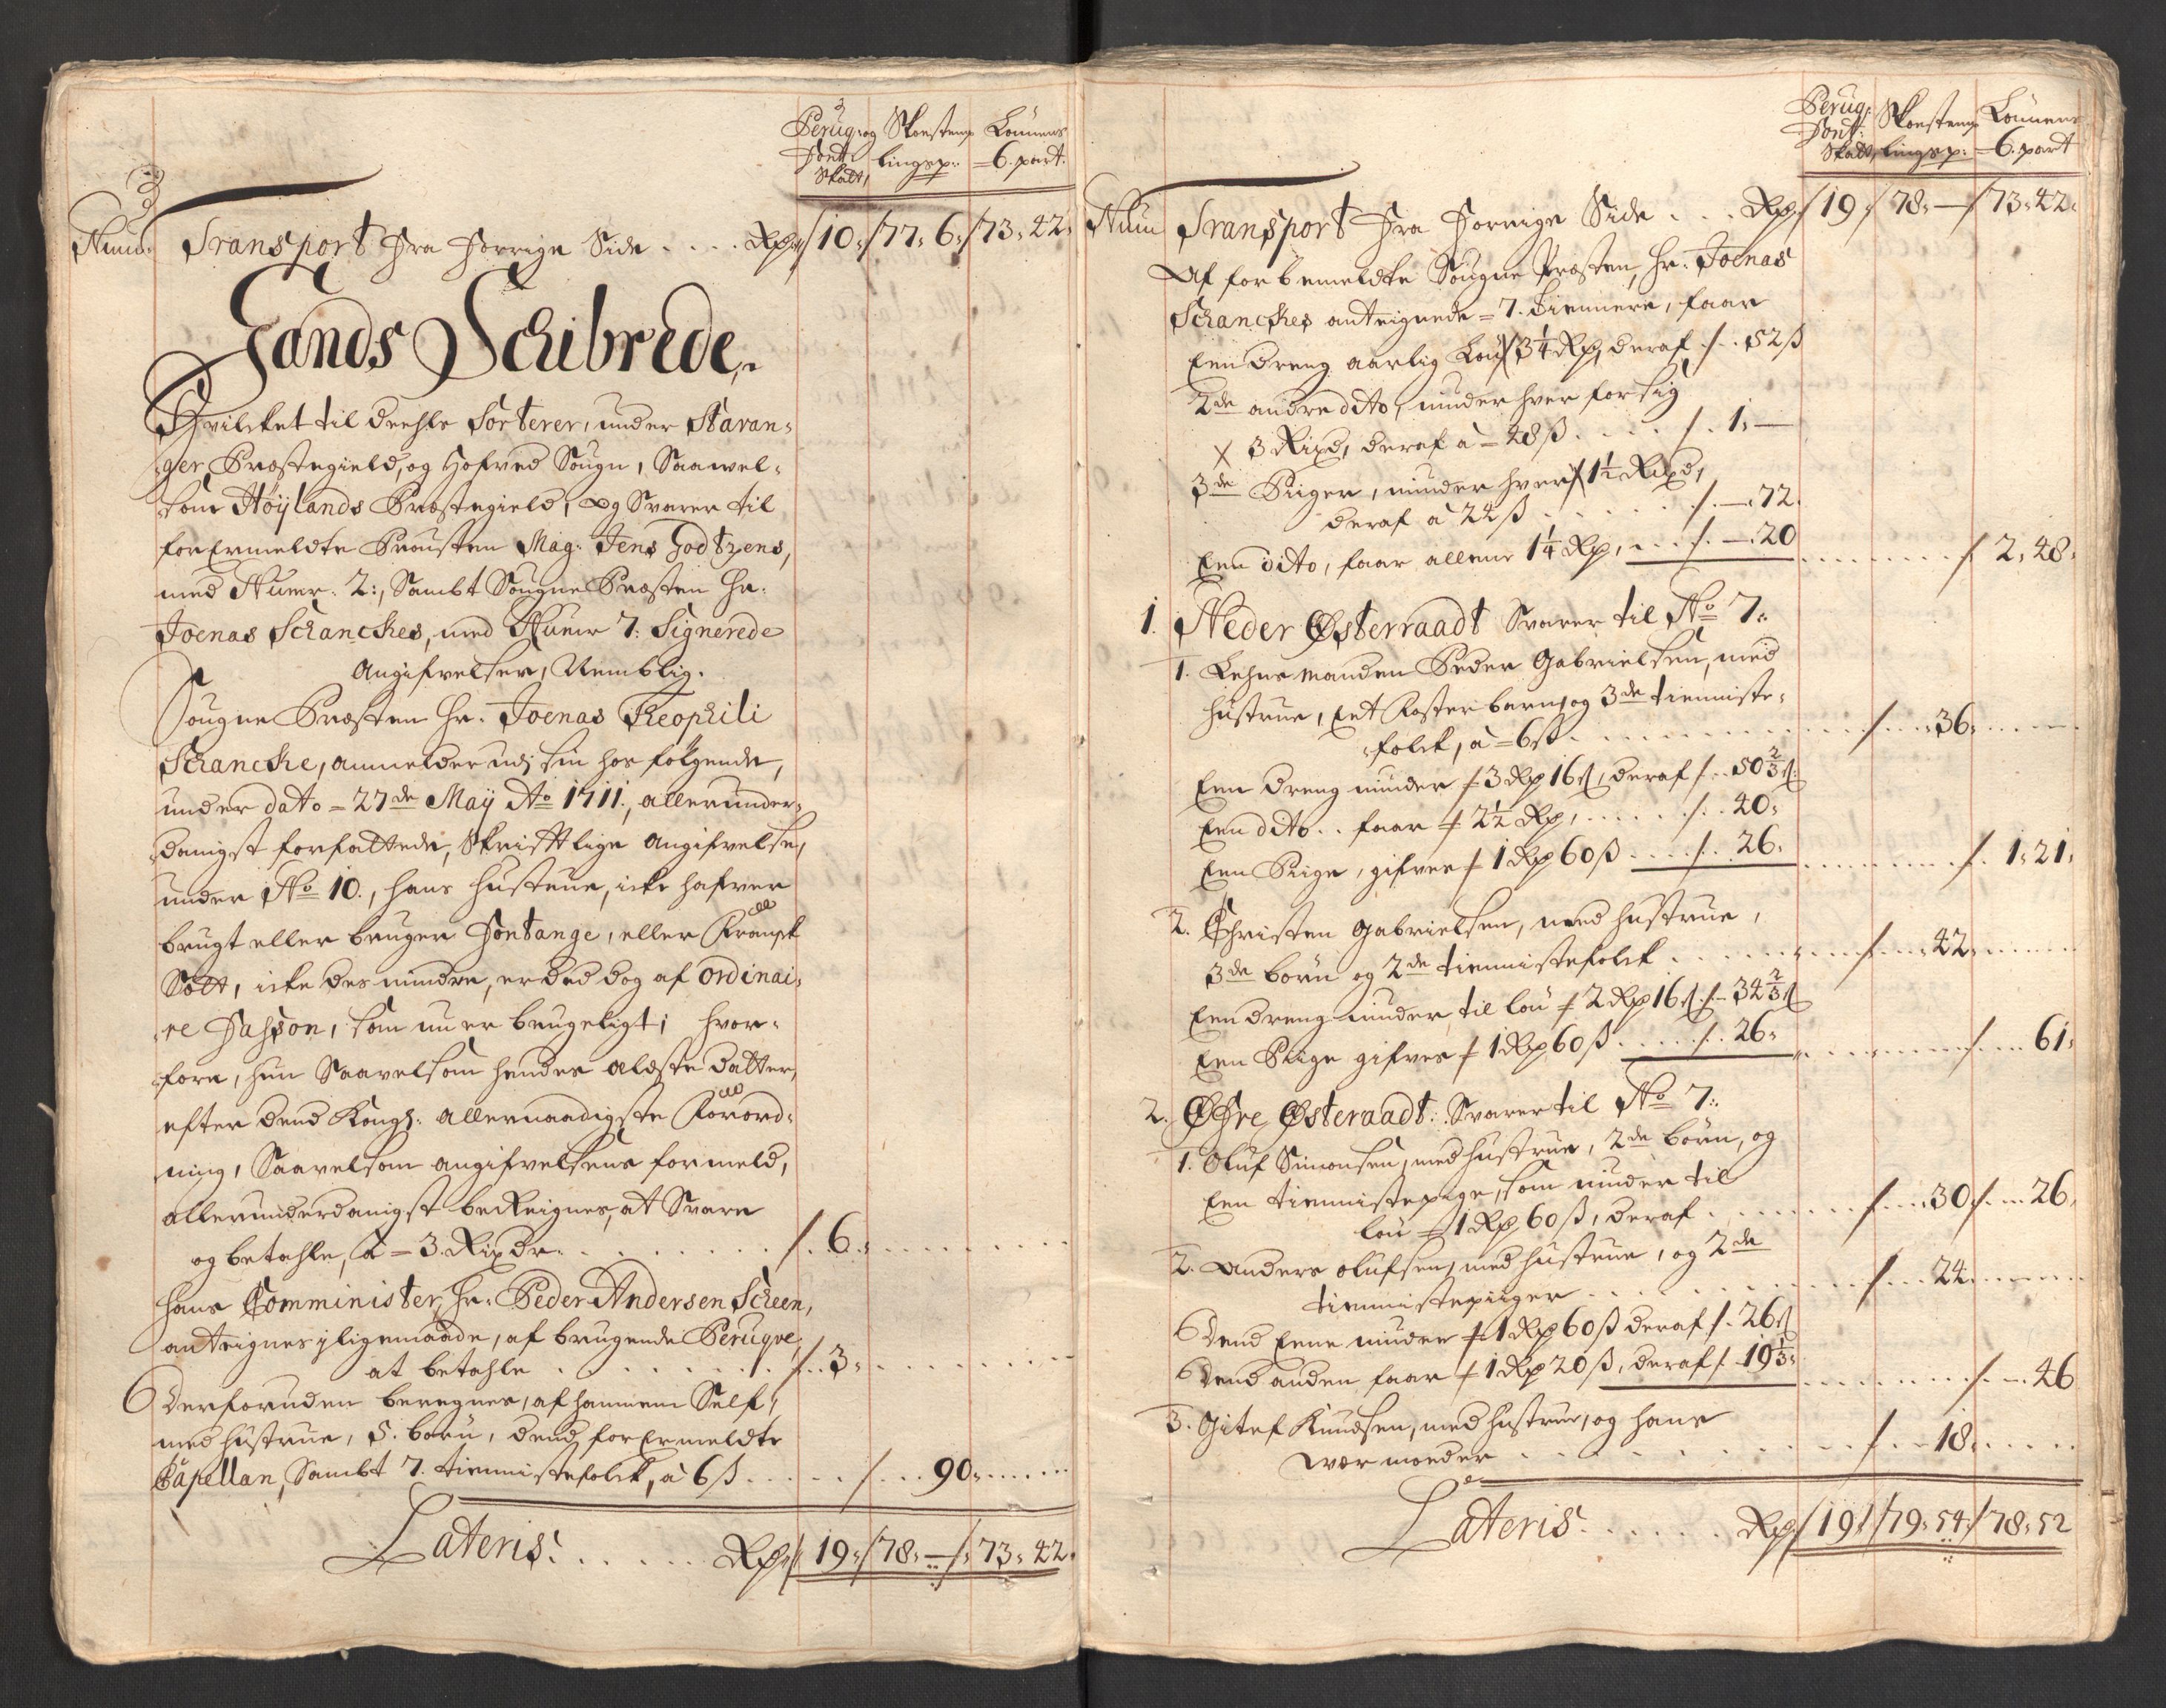 Perug: og Skoesteng Lønnens
Font: lingsp: =6. part.
Skatt,
Num: Transport fra forrige Side .... Rdr /10: /77: 6: /73: 42:
Gands Schibrede,
Hvilcket til deehls Sorterer, under Stavan-
ger Præstegield, og Hofred Sougn, Saawel-
som Höylands Præstegield, og Svarer til
forermeldte Provsten Mag: Jens Godtzens,
med Numr. 2:, Sambt Sougne Præsten Hr.
Joenas Schanckes, med Numr 7: Signerede
Angifvelser, Nemblig.
Sougne Præsten Hr. Joenas Theophili
Schancke, anmelder udj sin hos følgende,
under dato = 27de Maij Ao 1711., allerunder-
danigst forfattede, Skrifftlige Angifvelse,
under No 10., hans Hustrue, icke hafver
brugt eller bruger Fontange, eller
Sett, icke des mindre, er ded dog af ordinai-
re Fahson, som nu er brugeligt; hvor-
fore, hun Saavelsom hendes ældste datter,
efter dend Kongl: allernaadigste Forord-
ning, Saavelsom angifvelsens formeld,
allerunderdanigst beReignes, at Svare
og betahle, à = 3. Rixdr. . . . . . /. 6:
Hans Comminister, Hr. Peder Andersen Scheen,
anteignes j ligemaade, af brugende Peruqve,
at betahle . . . . . . . /. 3:
Derforuden beregnes, af hannem Self,
med hustrue, 5. børn, dend forermeldte
Capellan, Sambt 7. tiennistefolck, à 6 ß . . . . / . . 90:
Lateris: . . . . . . Rdr /19: /78: — /: 73: 42:
Perug: Skoesteng Lønnens
Font: lingsp: =6. part
Skatt,
Num Transport fra forrige Side . . . Rdr /19: /78: — /73: 42:
Af forbemeldte Sougne Præsten, Hr. Joenas
Schanckes anteignede = 7. Tiennere, faar
Een dreng aarlig Løn 3 1/4 Rdr, deraf ./. . 52 ß
2de andre dito, niuder hver for sig
X 3 Rixd, deraf à = 48 ß . . . . /. 1: —
3de Piiger, niuder hver 1 1/2 Rixd,
deraf à 24 ß . . . . . . /. — 72.
Een dito, faar allene 1 1/4 Rdr, . . . /. —. 20 . . . . . . . / 2: 48:
1. Neder Østerraadt Svarer til No 7:
1. Lehnsmanden Peder Gabrielsen, med
hustrue, Eet Fosterbarn, og 3de tienniste-
folck, à = 6 ß. . . . . . . . . . . / . . . 36: . . . .
Een dreng niuder / 3 Rdr 16 ß, deraf /. . 50 2/3 ß
Een dito . . faar / 2 1/2 Rdr, . . . . . /. . 40:
Een Piige, gifves / 1 Rdr 60 ß . . . . /. 26: . . . . . . . /. 1: 21:
2. Christen Gabrielsen, med hustrue,
3de børn og 2de tiennistefolck . . . . . . / . . . 42: . . . .
Een dreng niuder til løn / 2 Rdr 16 ß /. 34 2/3 ß
Een Piige gifves / 1 Rdr 60 ß . . . . . /. 26: . . . . . . . / . . . 61:
2. Øfre Østeraadt: Svarer til No 7:
1. Oluf Simonsen, med hustrue, 2de børn, og
Een tiennistepige, som niuder til
løn = / 1 Rdr 60 ß, deraf . . . . . . / . . . 30: /. . . . 26:
2. Anders Olufsen, med hustrue, og 2de
tiennistepiiger . . . . . . . . . / . . . 24: . . . .
Dend Eene niuder / 1 Rdr 60 ß deraf /. 26 ß
Dend anden faar / 1 Rdr 20 ß, deraf / . 19 1/3: . . . . . . / . . . 46
3. Gitef Knudsen, med hustrue, og hans
wær moeder . . . . . . . . . . / . . 18: . . . .
Lateris: . . . . . . Rdr /19: /79: 54: /78: 52